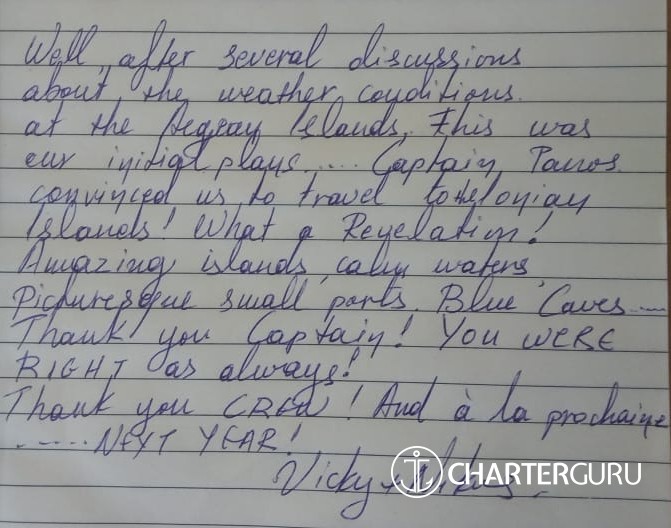 Well, after several discussions
about the weather conditions.
at the Aegean Islands, this was
our initial plans..... Captain Panos
convinced us to travel to the Ionian
Islands! What a Revelation!
Amazing islands, calm waters,
Picturesque small ports, Blue Caves.....
Thank you Captain! YOU WERE
RIGHT as always!
Thank you CREW! And à la prochaine
...... NEXT YEAR!
Vicky +
CHARTERGURU